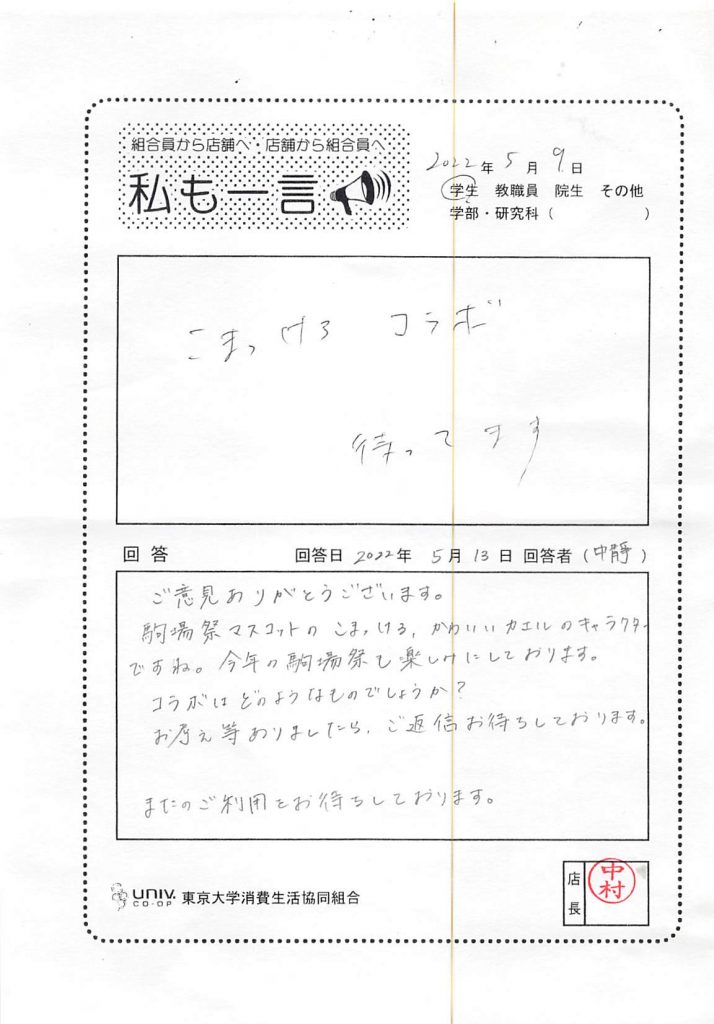 組合員から店舗へ・店舗から組合員へ
私も一言
2022年5月9日
学生 教職員 院生 その他
学部・研究科( )
こまっけろ コラボ
待ってます
回答 回答日 2022年 5月13日 回答者(中静)
ご意見ありがとうございます。
駒場祭マスコットの こまっけろ、かわいいカエルのキャラクター
ですね。今年の駒場祭も楽しみにしております。
コラボはどのようなものでしょうか?
お考え等ありましたら、ご返信お待ちしております。
またのご利用をお待ちしております。
UNIV. CO-OP 東京大学消費生活協同組合
店長 中村